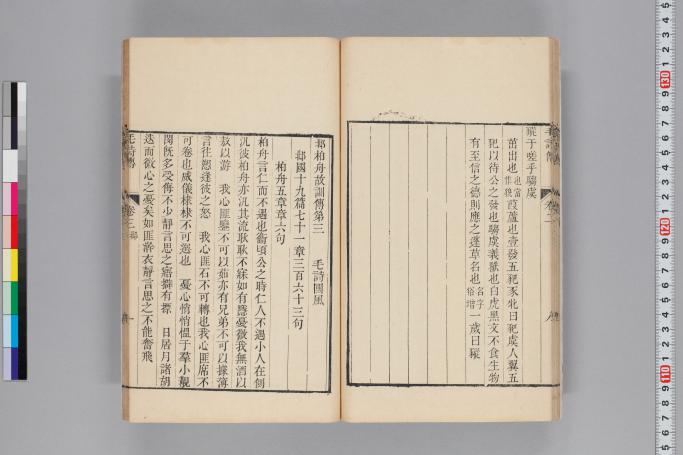 豵于嗟乎騶虞
茁出也葭蘆也壹發五豝豕牝曰豝虞人翼五
豝以待公之發也騶虞義獸也白虎黑文不食生物
有至信之德則應之蓬草名也名字俗增一歲曰豵
邶柏舟故訓傳第三　毛詩國風
邶國十九篇七十一章三百六十三句
柏舟五章章六句
柏舟言仁而不遇也衞頃公之時仁人不遇小人在側
汎彼柏舟亦汎其流耿耿不寐如有隱憂微我無酒以
敖以遊　我心匪鑒不可以茹亦有兄弟不可以據薄
言往愬逢彼之怒　我心匪石不可轉也我心匪席不
可卷也威儀棣棣不可選也　憂心悄悄慍于羣小覯
閔旣多受侮不少靜言思之寤擗有摽　日居月諸胡
迭而微心之憂矣如匪澣衣靜言思之不能奮飛
毛詩傳　卷三　邶　一